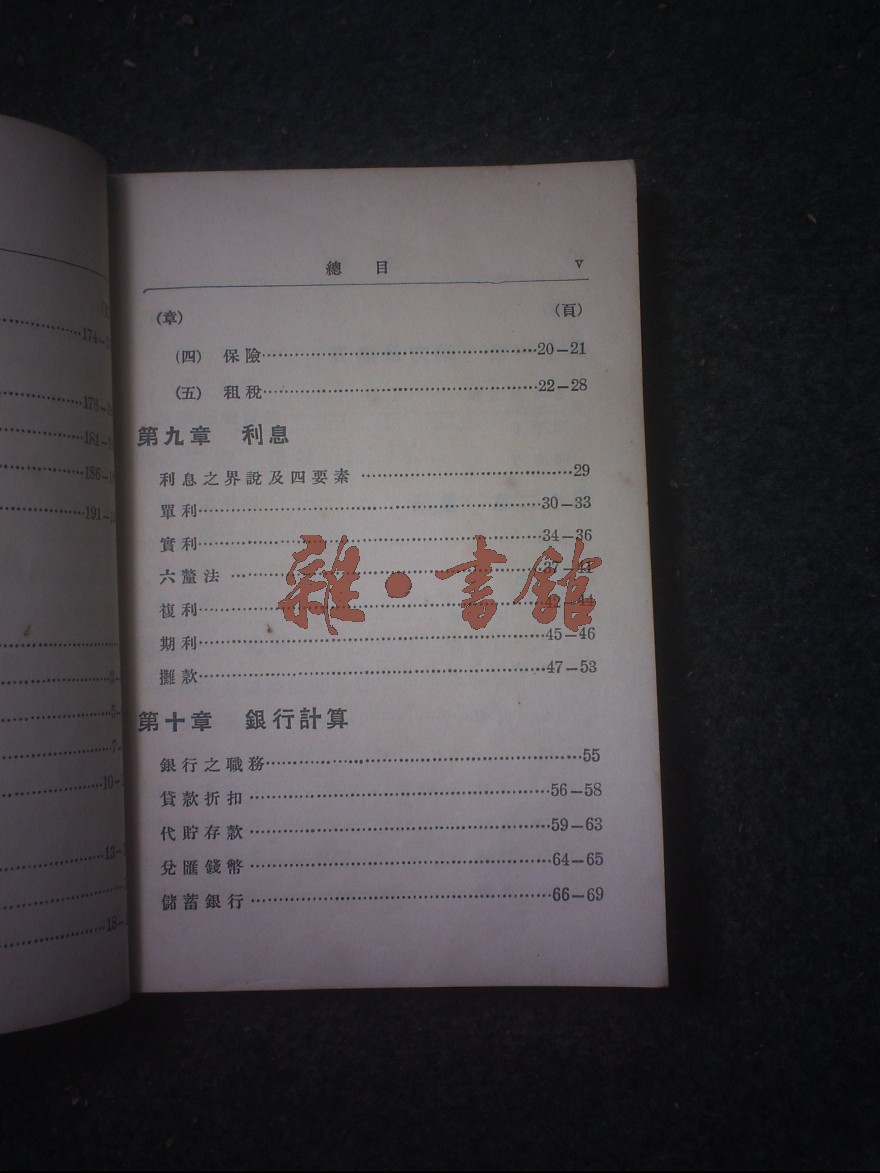 174-
178-
181-
186-
191-
10-
13-
18-
總 目 v
(章) (頁)
(四) 保險……20—21
(五) 租稅……22—28
第九章 利息
利息之界說及四要素……29
單利……30—33
實利……34—36
六釐法……37—41
複利……42—44
期利……45—46
攤款……47—53
第十章 銀行計算
銀行之職務……55
貸款折扣……56—58
代貯存款……59—63
兌匯錢幣……64—65
儲蓄銀行……66—69
雜·書館